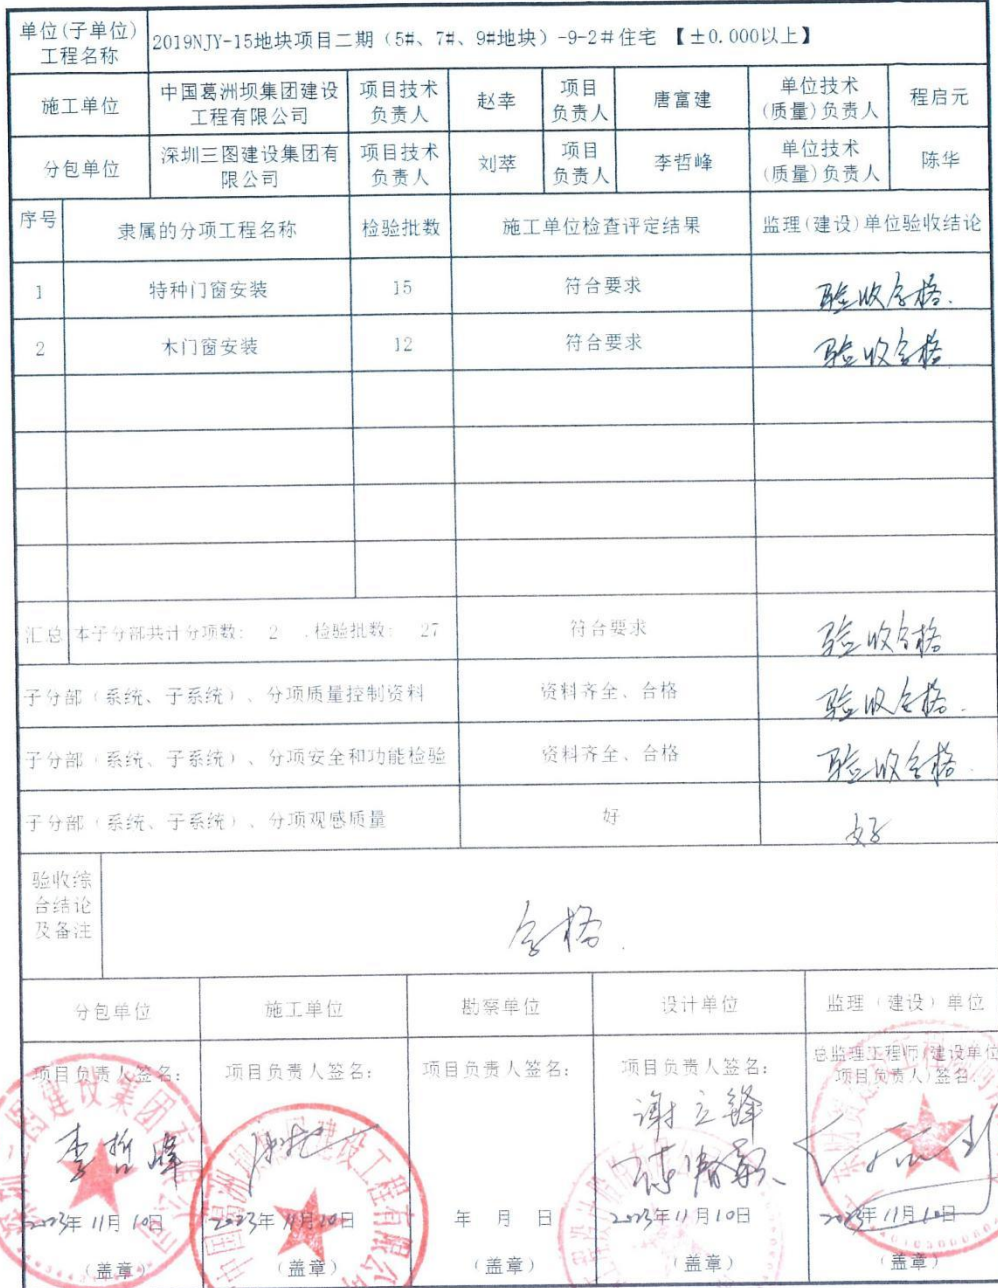 单位(子单位)
工程名称
2019NJY-15地块项目二期（5#、7#、9#地块）-9-2#住宅 【±0.000以上】
施工单位
中国葛洲坝集团建设
工程有限公司
项目技术
负责人
赵幸
项目
负责人
唐富建
单位技术
(质量)负责人
程启元
分包单位
深圳三图建设集团有
限公司
项目技术
负责人
刘萃
项目
负责人
李哲峰
单位技术
(质量)负责人
陈华
序号
隶属的分项工程名称
检验批数
施工单位检查评定结果
监理(建设)单位验收结论
1
特种门窗安装
15
符合要求
验收合格.
2
木门窗安装
12
符合要求
验收合格
汇总
本子分部共计分项数: 2 ,检验批数: 27
符合要求
验收合格
子分部（系统、子系统）、分项质量控制资料
资料齐全、合格
验收合格.
子分部（系统、子系统）、分项安全和功能检验
资料齐全、合格
验收合格.
子分部（系统、子系统）、分项观感质量
好
好
验收综
合结论
及备注
合格.
分包单位
施工单位
勘察单位
设计单位
监理（建设）单位
项目负责人签名:
项目负责人签名:
项目负责人签名:
项目负责人签名:
总监理工程师(建设单位
项目负责人)签名:
李哲峰
谢立锋
2023年11月10日
2023年11月10日
年 月 日
2023年11月10日
2023年11月10日
(盖章)
(盖章)
(盖章)
(盖章)
(盖章)